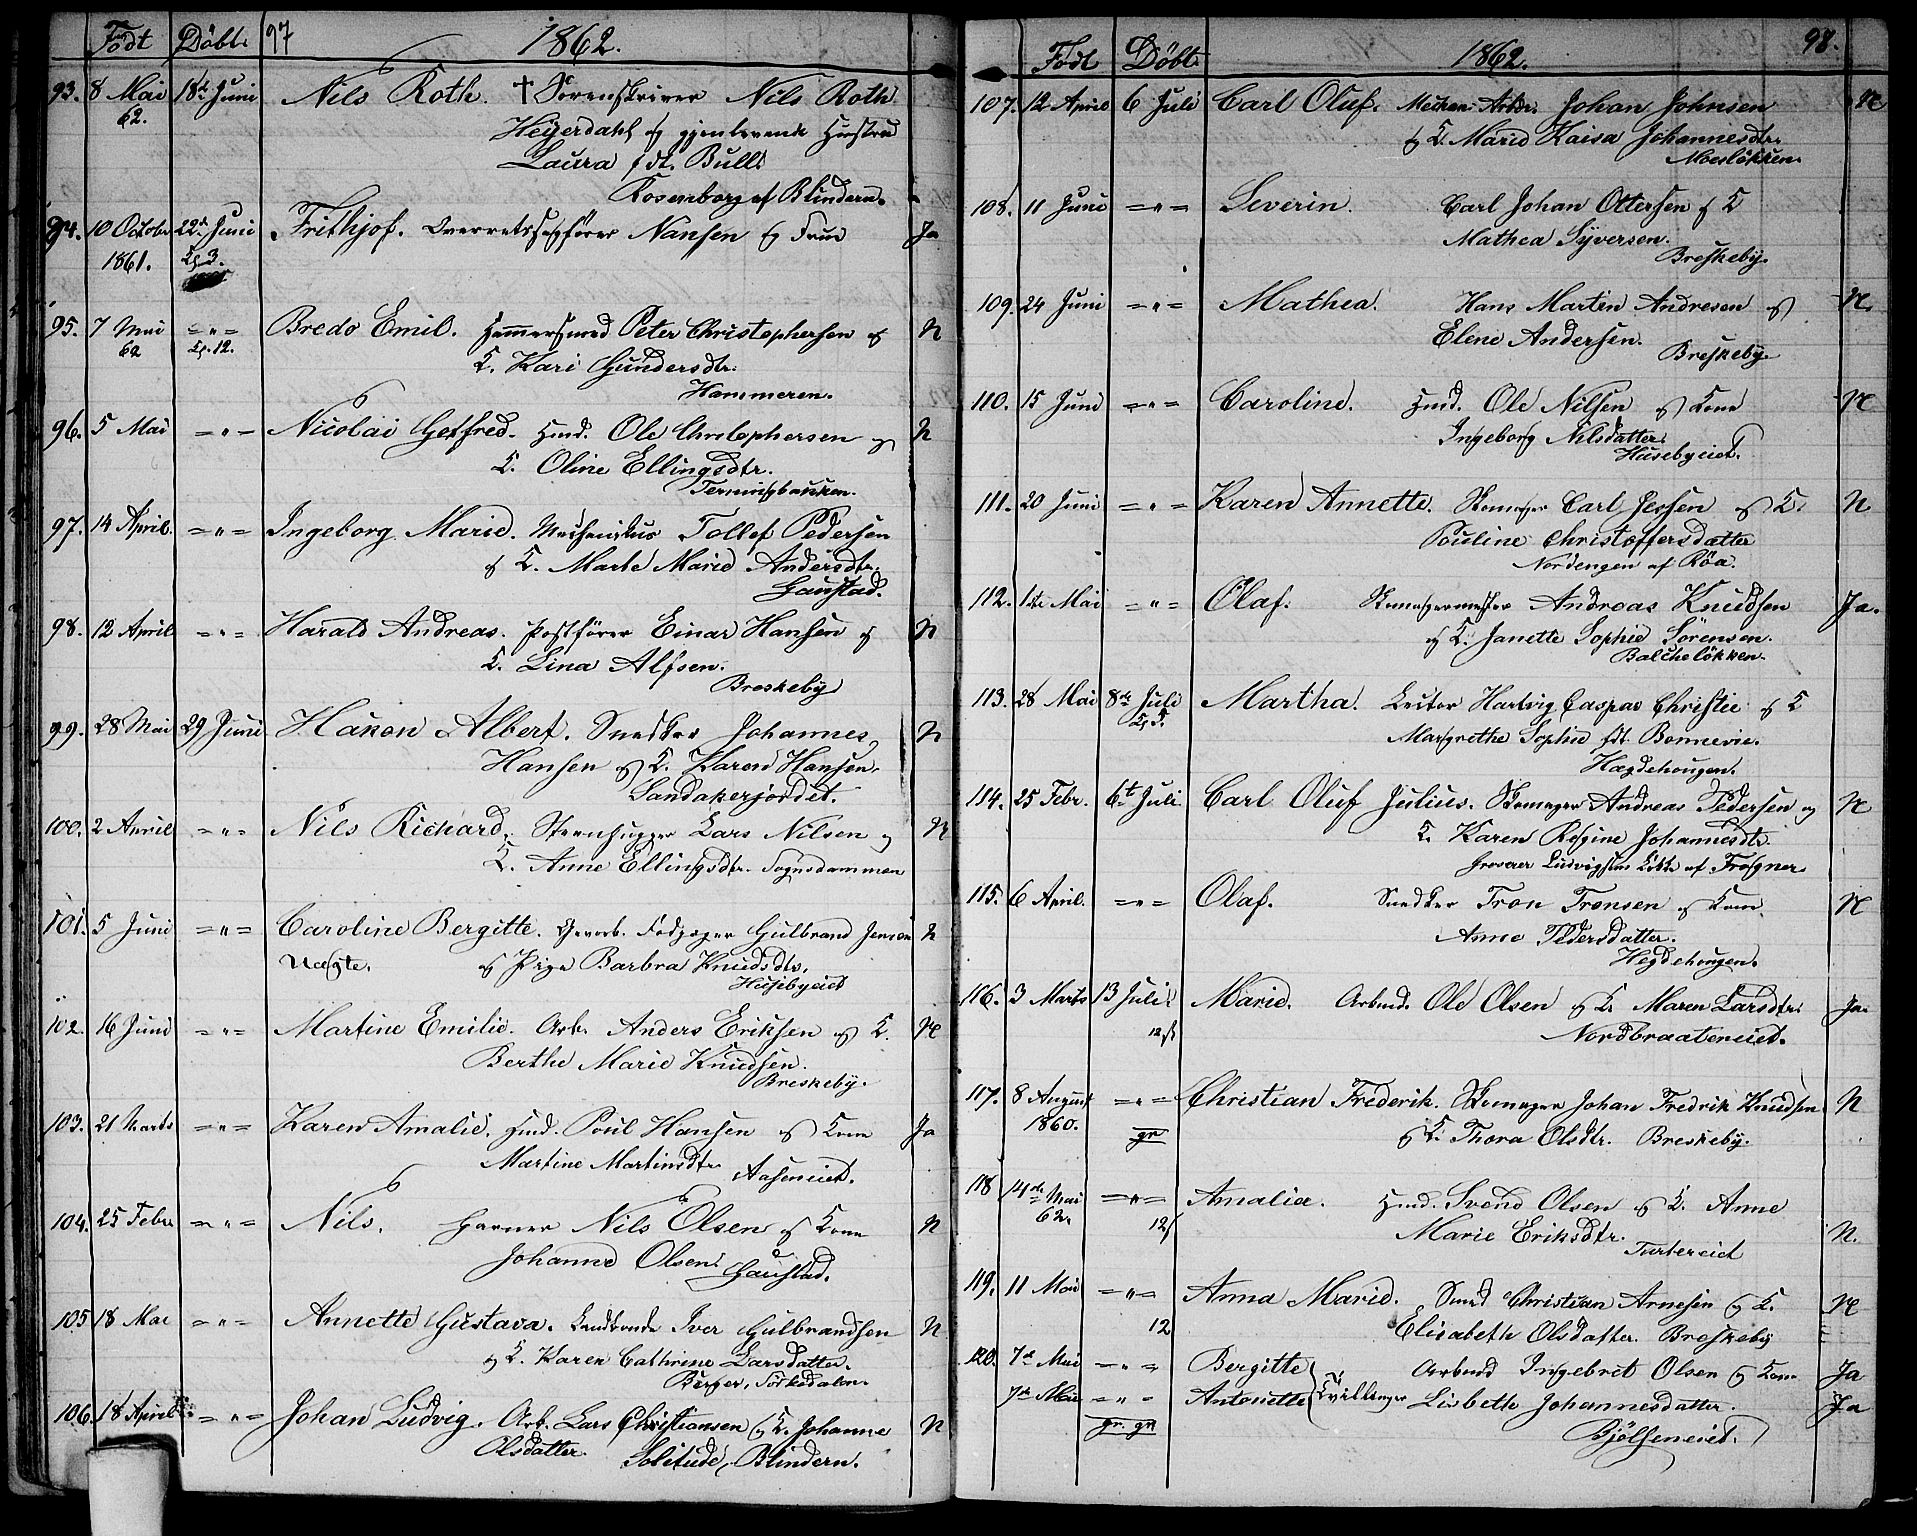 Født Døbt. 97 1862.
93. 8 Mai 18de Juni Nils Roth. † Sorenskriver Nils Roth
62. Heyerdahl og gjenlevende Hustru
Laura fdt. Bull.
Rosenborg af Blindern.
94. 10 Octobr 22de Juni Frithjof. Overretssagfører Nansen og Frue Ja
1861. Kl. 3.
95. 7 Mai = " = Bredo Emil. Hammersmed Peter Christophersen og N
62 Kl. 12. K. Kari Gundersdtr.
Hammeren.
96. 5 Mai = " = Nicolai Getfred. Husm. Ole Christophersen og N
K. Oline Ellingsdtr.
97. 14 April. = " = Ingeborg Marie. Mechanikus Tollef Pedersen
og K. Marte Marie Andersdtr.
Gaustad.
98. 12 April = " = Harald Andreas. Postfører Einar Hansen og N
K. Lina Alfsen.
Breskeby
99. 28 Mai 29 Juni Hakon Albert. Snedker Johannes N
Hansen og K. Karen Hansen.
Sandakerjordet.
100. 2 April = " = Nils Richard. Steenhugger Lars Nilsen og N
K. Anne Ellingsdtr. Sognsdammen
101. 5 Juni = " = Caroline Bergitte. Gevorb. Fodjæger Gulbrand Jensen N
Uægte. og Pige Barbra Knudsdtr.
Husebyeiet
102. 16 Juni = " = Martine Emilie. Arb. Anders Eriksen og K. N
Berthe Marie Knudsen.
Breskeby.
103. 21 Marts = " = Karen Amalie. Husm. Poul Hansen og Kone Ja
Martine Martinsdtr. Aaseneiet.
104. 25 Febr. = " = Nils. Garver Nils Olsen og Kone N
Johanne Olsen. Gaustad.
105 18 Mai = " = Annette Gustava. Landhandler Iver Gulbrandsen N
og K. Karen Cathrine Larsdatter.
Berger, Sørkedalen.
106. 18 April = " = Johan Ludvig. Arb. Lars Christiansen og K. Johanne N
Olsdatter. Solitude, Blindern.
Født Døbt. 1862. 98.
107. 12 April 6 Juli Carl Oluf. Mechan. Arbdr. Johan Johnsen N
og K. Marie Kaisa Johannesdtr.
108. 11 Juni = " = Severin. Carl Johan Ottersen og K
Mathea Syversen.
Breskeby.
109. 24 Juni = " = Mathea. Hans Martin Andresen og N.
Elene Andersen.
Breskeby.
110. 15 Juni = " = Caroline. Husm. Ole Nilsen og Kone N
Ingeborg Nilsdatter.
Husebyeiet.
111. 20 Juni = " = Karen Annette. Skomager Carl Jessen og K. N
Pouline Christoffersdatter
Nordengen af Röa.
112. 1ste Mai = " = Olaf. Skomagermester Andreas Knudsen Ja.
og K. Janette Sophie Sørensen.
Balcheløkken.
113. 28 Mai 8de Juli Martha. Lector Hartvig Caspar Christie og K
Margrethe Sophie fdt. Bonnevie.
Hægdehougen.
114. 25 Febr. 6te Juli Carl Oluf Julius. Skomager Andreas Pedersen og N
K. Karen Regine Johannesdtr.
Grosserer Ludvigsens Løkke af Frogner
115. 6 April. = " = Olaf. Snedker Tron Tronsen og Kone N
Anne Pedersdatter.
Hegdehougen.
116. 3 Marts 13 Juli. Marie. Arbmd. Ole Olsen og K. Maren Larsdtr. Ja.
12 ß Nordbraateneiet.
117. 8 August = " = Christian Frederik. Skomager Johan Fredrik Knudsen N
1860. gr og K. Thora Olsdtr. Breskeby.
118 14de Mai = " = Amalia. Husm. Svend Olsen og K. Anne
62. 12 ß Marie Eriksdtr. N.
Turtereiet
119. 11 Mai = " = Anna Marie. Smed Christian Arnesen og K. N
12 Elisabeth Olsdatter. Breskeby
120. 7de Mai = " = Bergitte Arbmd Ingebret Olsen og Kone Ja
7de Mai = " = Antonette } Tvillinger Lisbeth Johannesdatter. Ja
gr. gr Bjølseneiet.